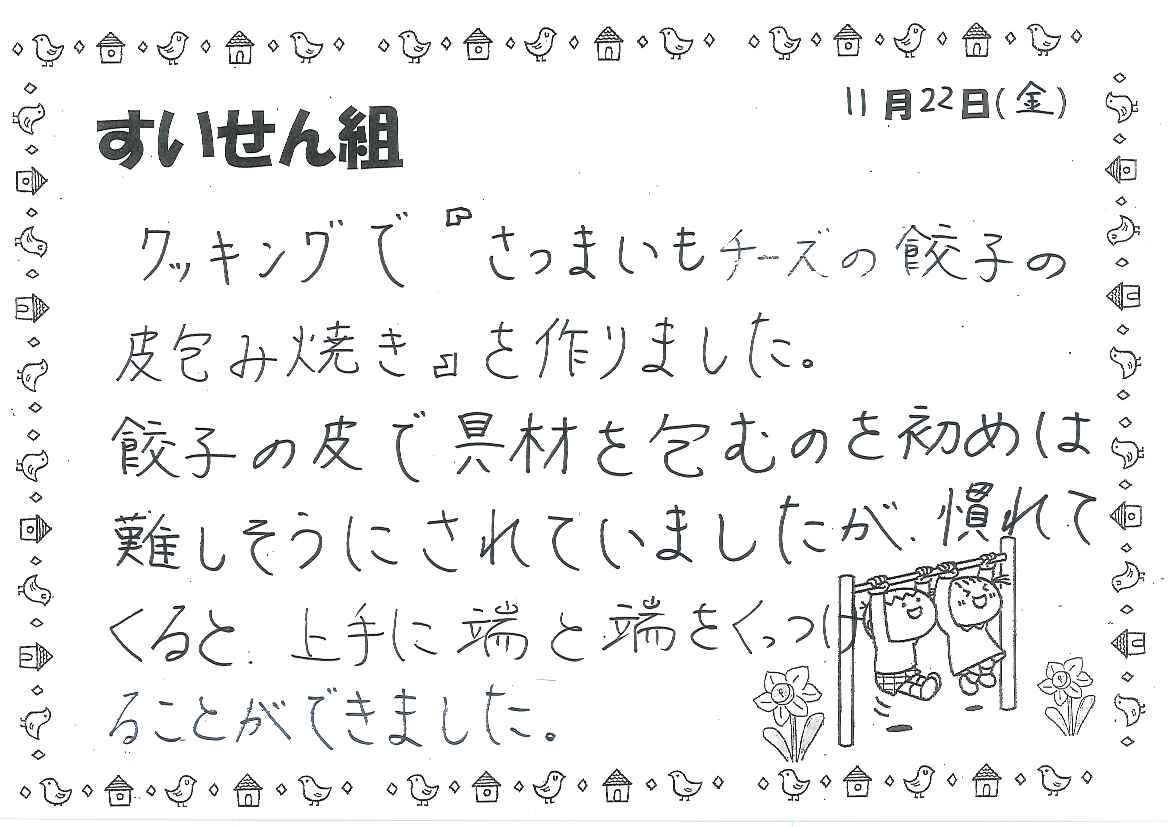 11月22日(金)
すいせん組
クッキングで『さつまいもチーズの餃子の
皮包み焼き』を作りました。
餃子の皮で具材を包むのを初めは
難しそうにされていましたが、慣れて
くると、上手に端と端をくっつけ
ることができました。